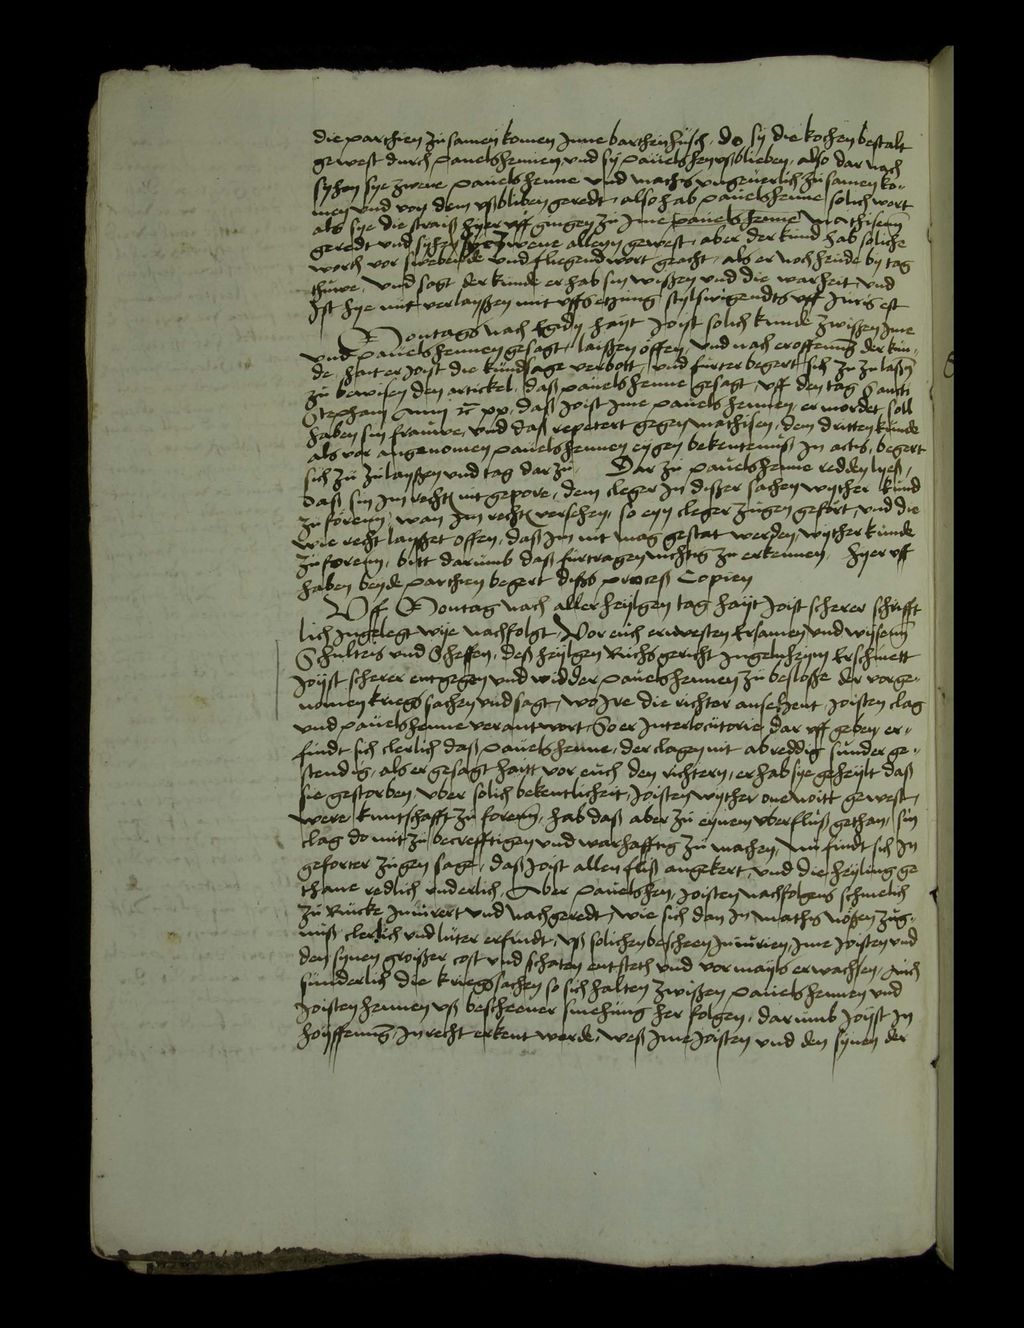 die parthien zusamen komen inne barthen husch, do sy die kochen bestalt
gewest durch pauelshennen und sy pauelshen ußblieben, also dar nach
syhen sye zwene pauelshenne und mathis ungeuerlich zusamen ko-
men und von dem ußbliben geredt, also hab pauelshenne solich wort
als sye die straiß hyer uff gingen zu ime pauelshenne mathisenn
geredt und syhen sye zwene alleyn gewest, aber der kund hab soliche
worth vor swebende und fliegend wort geacht, als er noch hude by tag
thuwe, und sagt der kunde er hab sin wissen und die warheit und
ist hye mit verlayssen mit uffsetzung stylswigendts uff iuris est
Montags nach Egidy hayt Joist solich kunde zwissen ime
und pauelshennen gesagt, laissen offen, und nach eroffenung der kun-
de, hait er Joist die kundsage verbott, und furter begert sich zu zulassen
zu bewisen den artickel, daß pauelshenne gesagt, uff den tag Sancti
Stephani, daß Joist ime pauelshennen ermordet soll
haben sin frauwe, und daß repetert gegen mathisen, dem dritten kunde
als vor angenomen pauelshennen eygen bekentenuß in actis, begert
sich zu zulaissen und tag dar zu. Dar zu pauelshenne redden lyeß,
daß sin im rechten nit gepore, dem cleger in disser sachen wyther kund
zu forenn, wan im rechten versehen, so eyn cleger zugen gefort, und die
wie recht laisset offen, daß im nit mag gestat werden, wyther kunde
zu forenn, bitt darumb daß furtragen nichtig zu erkennen, hyer uff
haben beyde parthien begert dißs proceß Copien
Uff Montag nach aller heyligen tag hayt Joist scherer schrifft
lich ingelegt wije nachfolgt, Vor euch ernvesten Ersamen und wysenn
Schulteis und Scheffen, deß heylgen Richsgericht Ingelnheym Erschinett
Joist scherer entgegen und widder pauelshennen zu beslosse der vorge-
nomen kriegs sachen und sagt, wo ire die richter ansehent Joisten clag
und pauelshenne verantwort, So er interlocutorie dar uff geben, er-
findt sich clerlich daß pauelshenne, der clagen nit abreddig sunder ge-
stendig, als er gesagt hait vor euch den richtern, er hab sye geheylt daß
sie gestorben, uber solich bekentlicheit, Joisten wyther one noitt gewest
were kuntschafft zu forenn, hab daß aber zu eynem uberfluß gethan, sin
clag do mit zu becrefftigen und warhafftig zu machen, nu findt sich in
geforter zugen sage, daß Joist allen fliß angekert, und die heylung ge
thane redlich, Aber pauelshen, Joisten nachfolgens schmelich
zu Rucke iniurert und nachgeredt, wie sich dan in mathis noßen zug-
nuß clerlich und luter erfindt, uß solichen bescheen Iniurien, ime Joisten und
den synen groisser cost und schaten entsteth und vor mayls erwachsen, auch
sunderlich die kriegssachen so sich halten zwissen pauelshennen und
Joisten hennen uß bescheener smehung her folgen, darumb Joyst in
hoyffenung, in recht erkent werde, weß ime Joisten und den synen der